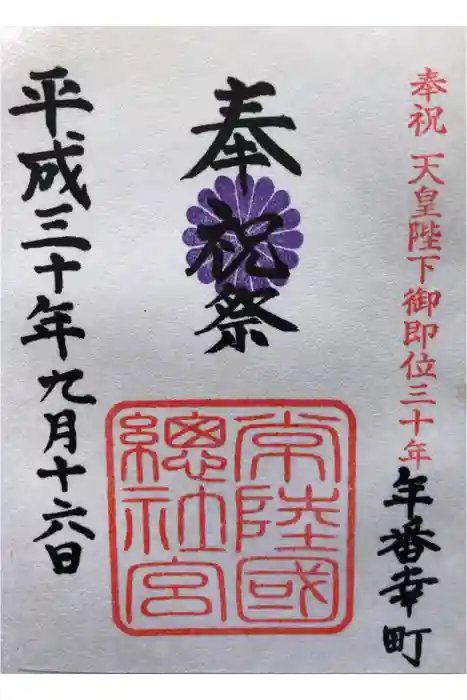 奉祝 天皇陛下御即位三十年
年番幸町
奉祝祭
常陸國
總社宮
平成三十年九月十六日